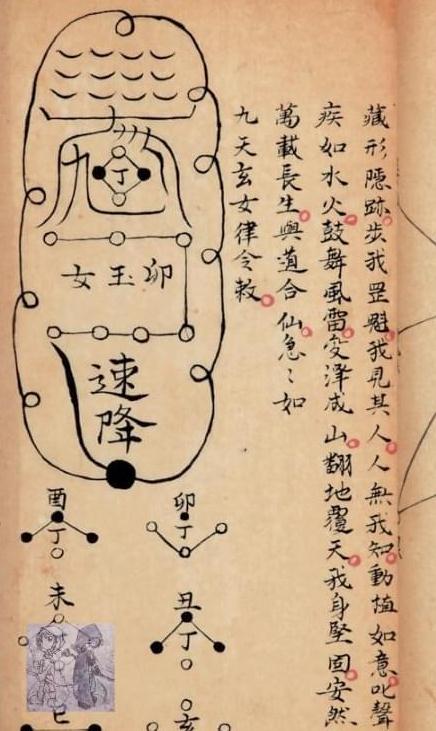 藏形隱跡步我罡魁我見其人人無我知動植如意叱聲
疾如水火鼓舞風雷变澤成山翻地覆天我身堅固安然
萬載長生與道合仙急〻如
九天玄女律令敕
丁
卯玉女
速降
卯
丁
丑
丁
亥
酉
丁
未
巳